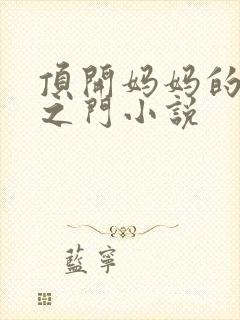 頂開妈妈的
之門小説
藍寧